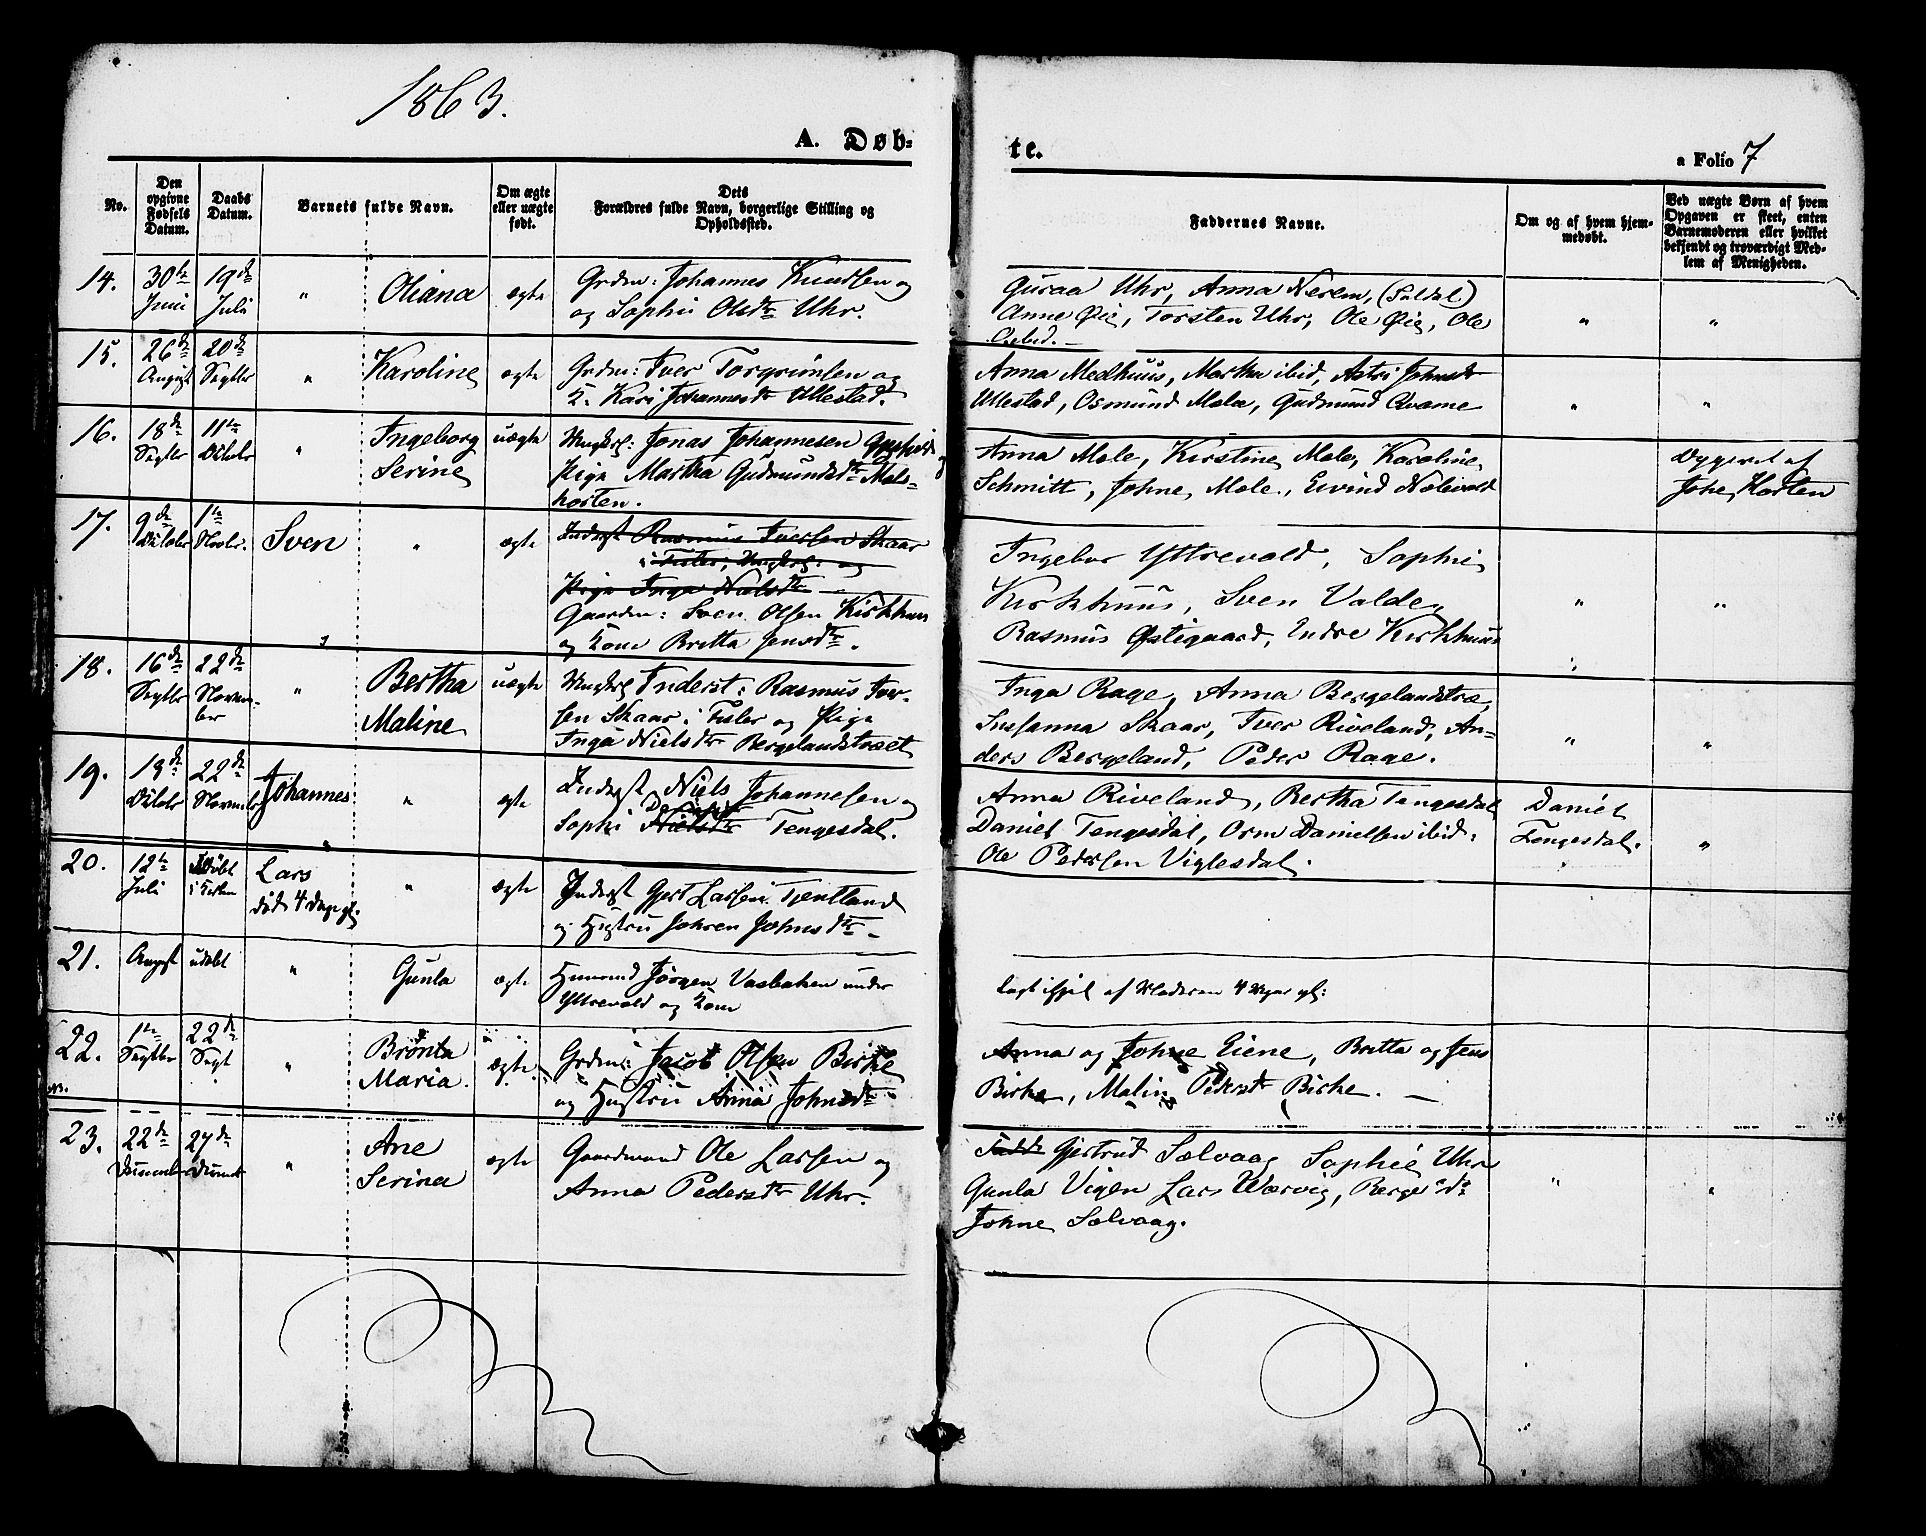 1863.
A. Døb=
te.
a Folio 7
No.
Den opgivne Fødsels Datum.
Daabs Datum.
Barnets fulde Navn.
Om ægte eller uægte født.
Dets Forældres fulde Navn, borgerlige Stilling og Opholdssted.
Faddernes Navne.
Om og af hvem hjemmedøbt.
Ved uægte Børn af hvem Opgaven er skeet, enten Barnemoderen eller hvilket bekjendt og troværdigt Medlem af Menigheden.
14. 30te Juni 19de Juli " Oliana ægte Grdm: Johannes Knudsen og
og Sophi Olsdtr Uhr.
Guraa Uhr, Anna Nerem, (Suldal)
Anne Øie, Torsten Uhr, Ole Øie, Ole
" "
15. 26de August 20de Septbr " Karoline ægte Grdm: Iver Torgrimsen og
K. Kari Johannesdtr Ullestad.
Anna Medhuus, Martha ibid, Astri Johnsdtr
Ullestad, Osmund Mæle, Gudmund Qvame
" "
16. 18de Septbr 11te Octobr " Ingeborg Serine uægte Ungkrl: Jonas Johannesen
Pige Martha Gudmundsdtr Mæle-
korten.
Anna Mæle, Kirstine Mæle, Karoline
Schmitt, Johne Mæle, Eivind
Opgivet af
Johe Korten
17. 9de Octobr 1te Novbr. Sven " ægte Inderst Rasmus Iversen Skaar
i Fister, Ungkrl: og
Pige Inga Nielsdtr
Gaardm: Sven Olsen Kirkhuus
og Kone Britta Jensdtr.
Ingebor Yttrevold, Sophi
Kirkhuus, Sven Valde,
Rasmus Østigaard, Endre Kirkhuus
" "
18. 16de Septbr 22de November " Bertha Maline uægte Ungkrl Inderst: Rasmus Iver-
sen Skaar i Fister og Pige
Inga Nielsdtr Bergelandstræet
Inga Rage, Anna Bergelandstræ,
Susanna Skaar, Iver Riveland, An-
ders Bergeland, Peder Rage.
" "
19. 18de Octobr 22de Novembr Johannes " ægte Inderst Niels Johannesen og
Sophi Nielsdtr Tengesdal.
Anna Riveland, Bertha Tengesdal
Daniel Tengesdal, Orm Danielsen ibid:
Ole Pedersen Viglesdal.
Daniel
Tengesdal.
"
20. 12te Juli Døbt i Kirken Lars
død 4 Dage gl. " ægte Inderst Gjert Larsen Tjentland
og Hustru Johren Johnsdtr
21. August udøbt " Gunla ægte Husmand Jørgen Vasbakken under
Yttrevold og Kone
Lagt ihjel af Moderen 4 Uger gl:
22. 1te Septbr 22de Sept " Brønta Maria. ægte. Grdm: Jacob Olsen Birke
og Hustru Anna Johnsdtr
Anna og Johne Eiene, Britta og Jens
Birke, Malin Pedersdtr Birke.
23. 22de December 27de Decembr " Ane Serina ægte Gaardmand Ole Larsen og
Anna Pedersdtr Uhr.
Gjertrud Sælvaag Sophie Uhr
Gunla Vigen Lars Wærvig, Berge do
Johne Sælvaag.
" "